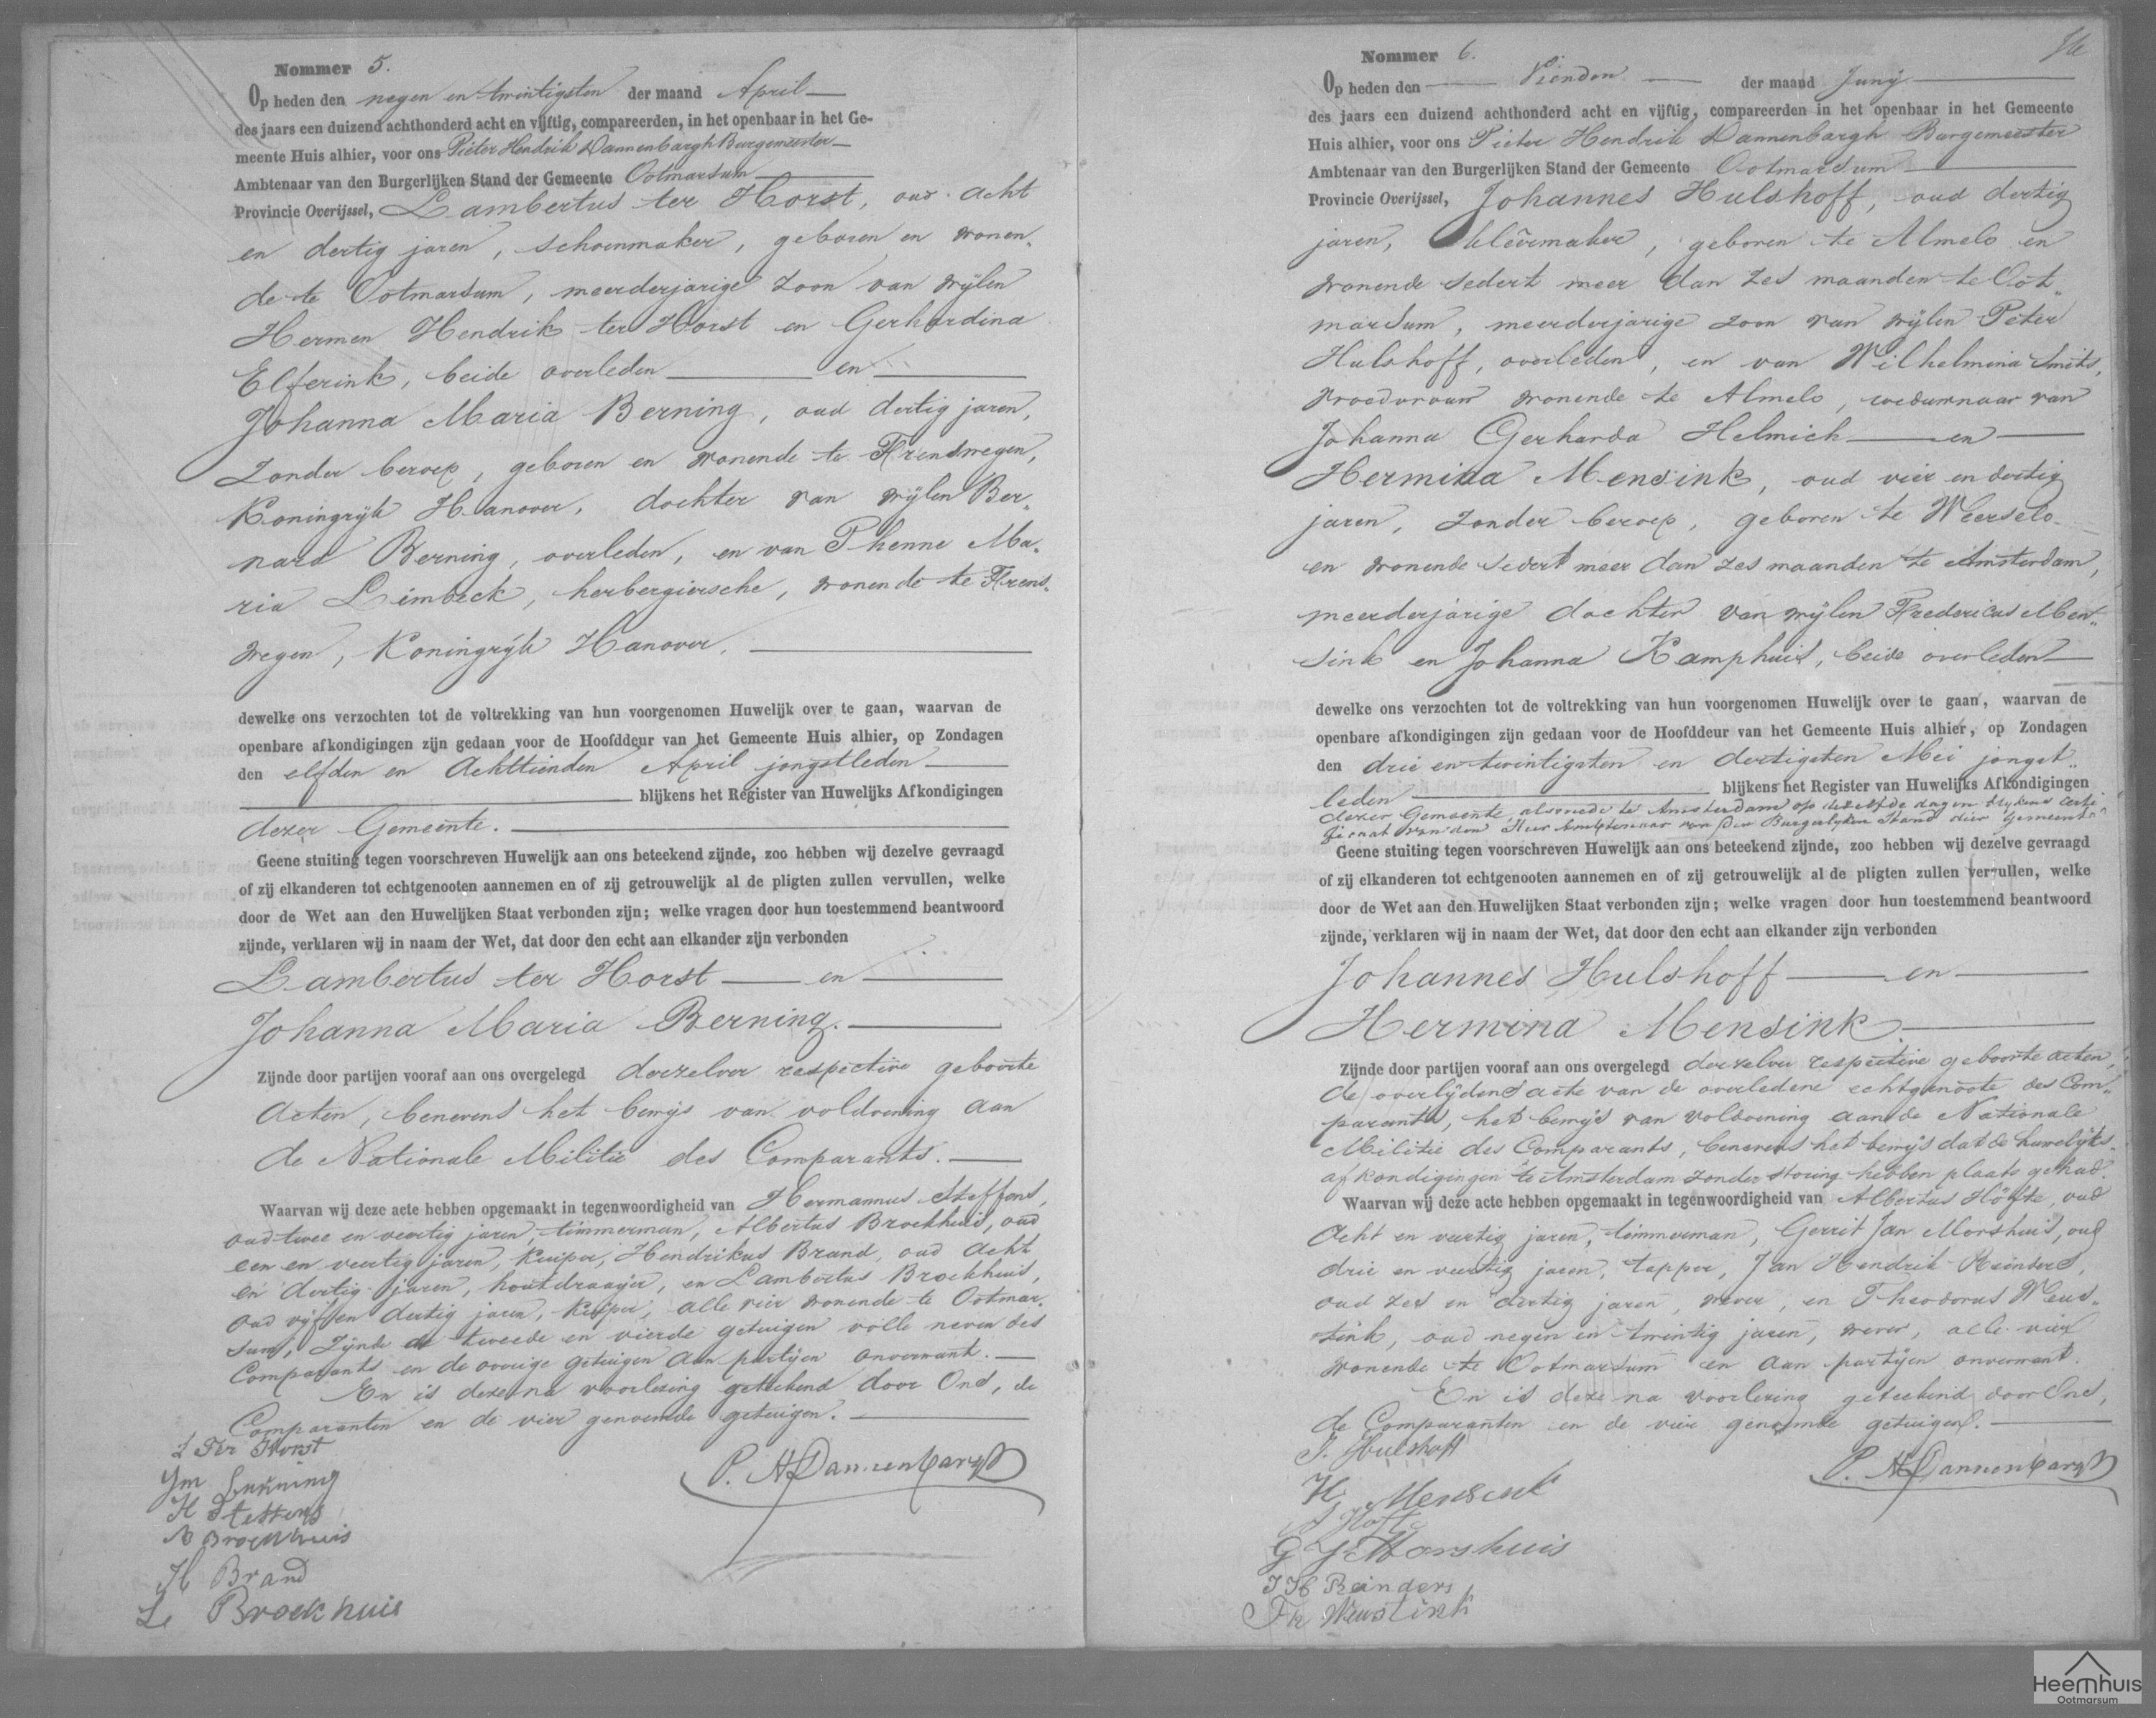 Nommer 5.
Op heden den negen en twintigsten der maand April
des jaars een duizend achthonderd acht en vijftig, compareerden, in het openbaar in het Ge-
meente Huis alhier, voor ons Pieter Hendrik Dannenbargh Burgemeester
Ambtenaar van den Burgerlijken Stand der Gemeente Ootmarsum
Provincie Overijssel, Lambertus ter Horst, oud acht
en dertig jaren, schoenmaker, geboren en wonen„
de te Ootmarsum, meerderjarige zoon van wijlen
Hermen Hendrik ter Horst en Gerhardina
Elferink, beide overleden en
Johanna Maria Berning, oud dertig jaren,
zonder beroep, geboren en wonende te Frenswegen,
Koningrijk Hanover, dochter van wijlen Ber„
nard Berning, overleden, en van Phenne Ma„
ria Leimbeck, herbergiersche, wonende te Frens„
wegen, Koningrijk Hanover,
dewelke ons verzochten tot de voltrekking van hun voorgenomen Huwelijk over te gaan, waarvan de
openbare afkondigingen zijn gedaan voor de Hoofddeur van het Gemeente Huis alhier, op Zondagen
den elfden en Achttienden April jongstleden
blijkens het Register van Huwelijks Afkondigingen
dezer Gemeente.
Geene stuiting tegen voorschreven Huwelijk aan ons beteekend zijnde, zoo hebben wij dezelve gevraagd
of zij elkanderen tot echtgenooten aannemen en of zij getrouwelijk al de pligten zullen vervullen, welke
door de Wet aan den Huwelijken Staat verbonden zijn; welke vragen door hun toestemmend beantwoord
zijnde, verklaren wij in naam der Wet, dat door den echt aan elkander zijn verbonden
Lambertus ter Horst en
Johanna Maria Berning.
Zijnde door partijen vooraf aan ons overgelegd derzelver respective geboorte
Acten, benevens het bewijs van voldoening aan
de Nationale Militie des Comparants.
Waarvan wij deze acte hebben opgemaakt in tegenwoordigheid van Hermannus Steffens,
oud twee en veertig jaren, timmerman, Albertus Broekhuis, oud
een en veertig jaren, Kuiper, Hendrikus Brand, oud acht
en dertig jaren, houtdraayer, en Lambertus Broekhuis,
oud vijf en dertig jaren, Kuiper, alle vier wonende te Ootmar„
sum, zijnde de tweede en vierde getuigen volle neven des
Comparants en de overige getuigen aan partijen onverwant.
En is deze na voorlezing geteekend door Ons, de
Comparanten en de vier genoemde getuigen.
L Ter Horst
P. H Dannenbargh
J m Berning
H Steffens
A Broekhuis
H Brand
L. Broekhuis
Nommer 6.
Op heden den Tienden der maand Junij
des jaars een duizend achthonderd acht en vijftig, compareerden in het openbaar in het Gemeente
Huis alhier, voor ons Pieter Hendrik Dannenbargh Burgemeester
Ambtenaar van den Burgerlijken Stand der Gemeente Ootmarsum
Provincie Overijssel, Johannes Hulshoff, oud dertig
jaren, kleêrmaker, geboren te Almelo en
wonende sedert meer dan zes maanden te Oot„
marsum, meerderjarige zoon van wijlen Peter
Hulshoff, overleden, en van Wilhelmina Smits,
vroedvrouw wonende te Almelo, weduwnaar van
Johanna Gerharda Helmich en
Hermina Mensink, oud vier en dertig
jaren, zonder beroep, geboren te Weerselo
en wonende sedert meer dan zes maanden te Amsterdam,
meerderjarige dochter van wijlen Fredericus Men„
sink en Johanna Kamphuis, beide overleden
dewelke ons verzochten tot de voltrekking van hun voorgenomen Huwelijk over te gaan, waarvan de
openbare afkondigingen zijn gedaan voor de Hoofddeur van het Gemeente Huis alhier, op Zondagen
den drie en twintigsten en dertigsten Mei jongst„
leden blijkens het Register van Huwelijks Afkondigingen
dezer Gemeente, alsmede te Amsterdam op dezelfde dagen blijkens certi„
ficaat van den Heer Ambtenaar van den Burgerlijken Stand dier Gemeente
Geene stuiting tegen voorschreven Huwelijk aan ons beteekend zijnde, zoo hebben wij dezelve gevraagd
of zij elkanderen tot echtgenooten aannemen en of zij getrouwelijk al de pligten zullen vervullen, welke
door de Wet aan den Huwelijken Staat verbonden zijn; welke vragen door hun toestemmend beantwoord
zijnde, verklaren wij in naam der Wet, dat door den echt aan elkander zijn verbonden
Johannes Hulshoff en
Hermina Mensink.
Zijnde door partijen vooraf aan ons overgelegd derzelver respective geboorte acten,
de overlijdens acte van de overledene echtgenoote des Com„
parants, het bewijs van voldoening aan de Nationale
Militie des Comparants, benevens het bewijs dat de huwelijks„
afkondigingen te Amsterdam zonder storing hebben plaats gehad.
Waarvan wij deze acte hebben opgemaakt in tegenwoordigheid van Albertus Höfte, oud
Acht en veertig jaren, timmerman, Gerrit Jan Morshuis, oud
drie en veertig jaren, tapper, Jan Hendrik Reinders,
oud zes en dertig jaren, wever, en Theodorus Weus„
tink, oud negen en twintig jaren, wever, alle vier
wonende te Ootmarsum en aan partijen onverwant.
En is deze na voorlezing geteekend door Ons,
de Comparanten en de vier genoemde getuigen.
J. Hulshoff
P. H Dannenbargh
H. Mensink
A Höfte
G J Morshuis
J H Reinders
Th Weustink
Heemhuis
Ootmarsum